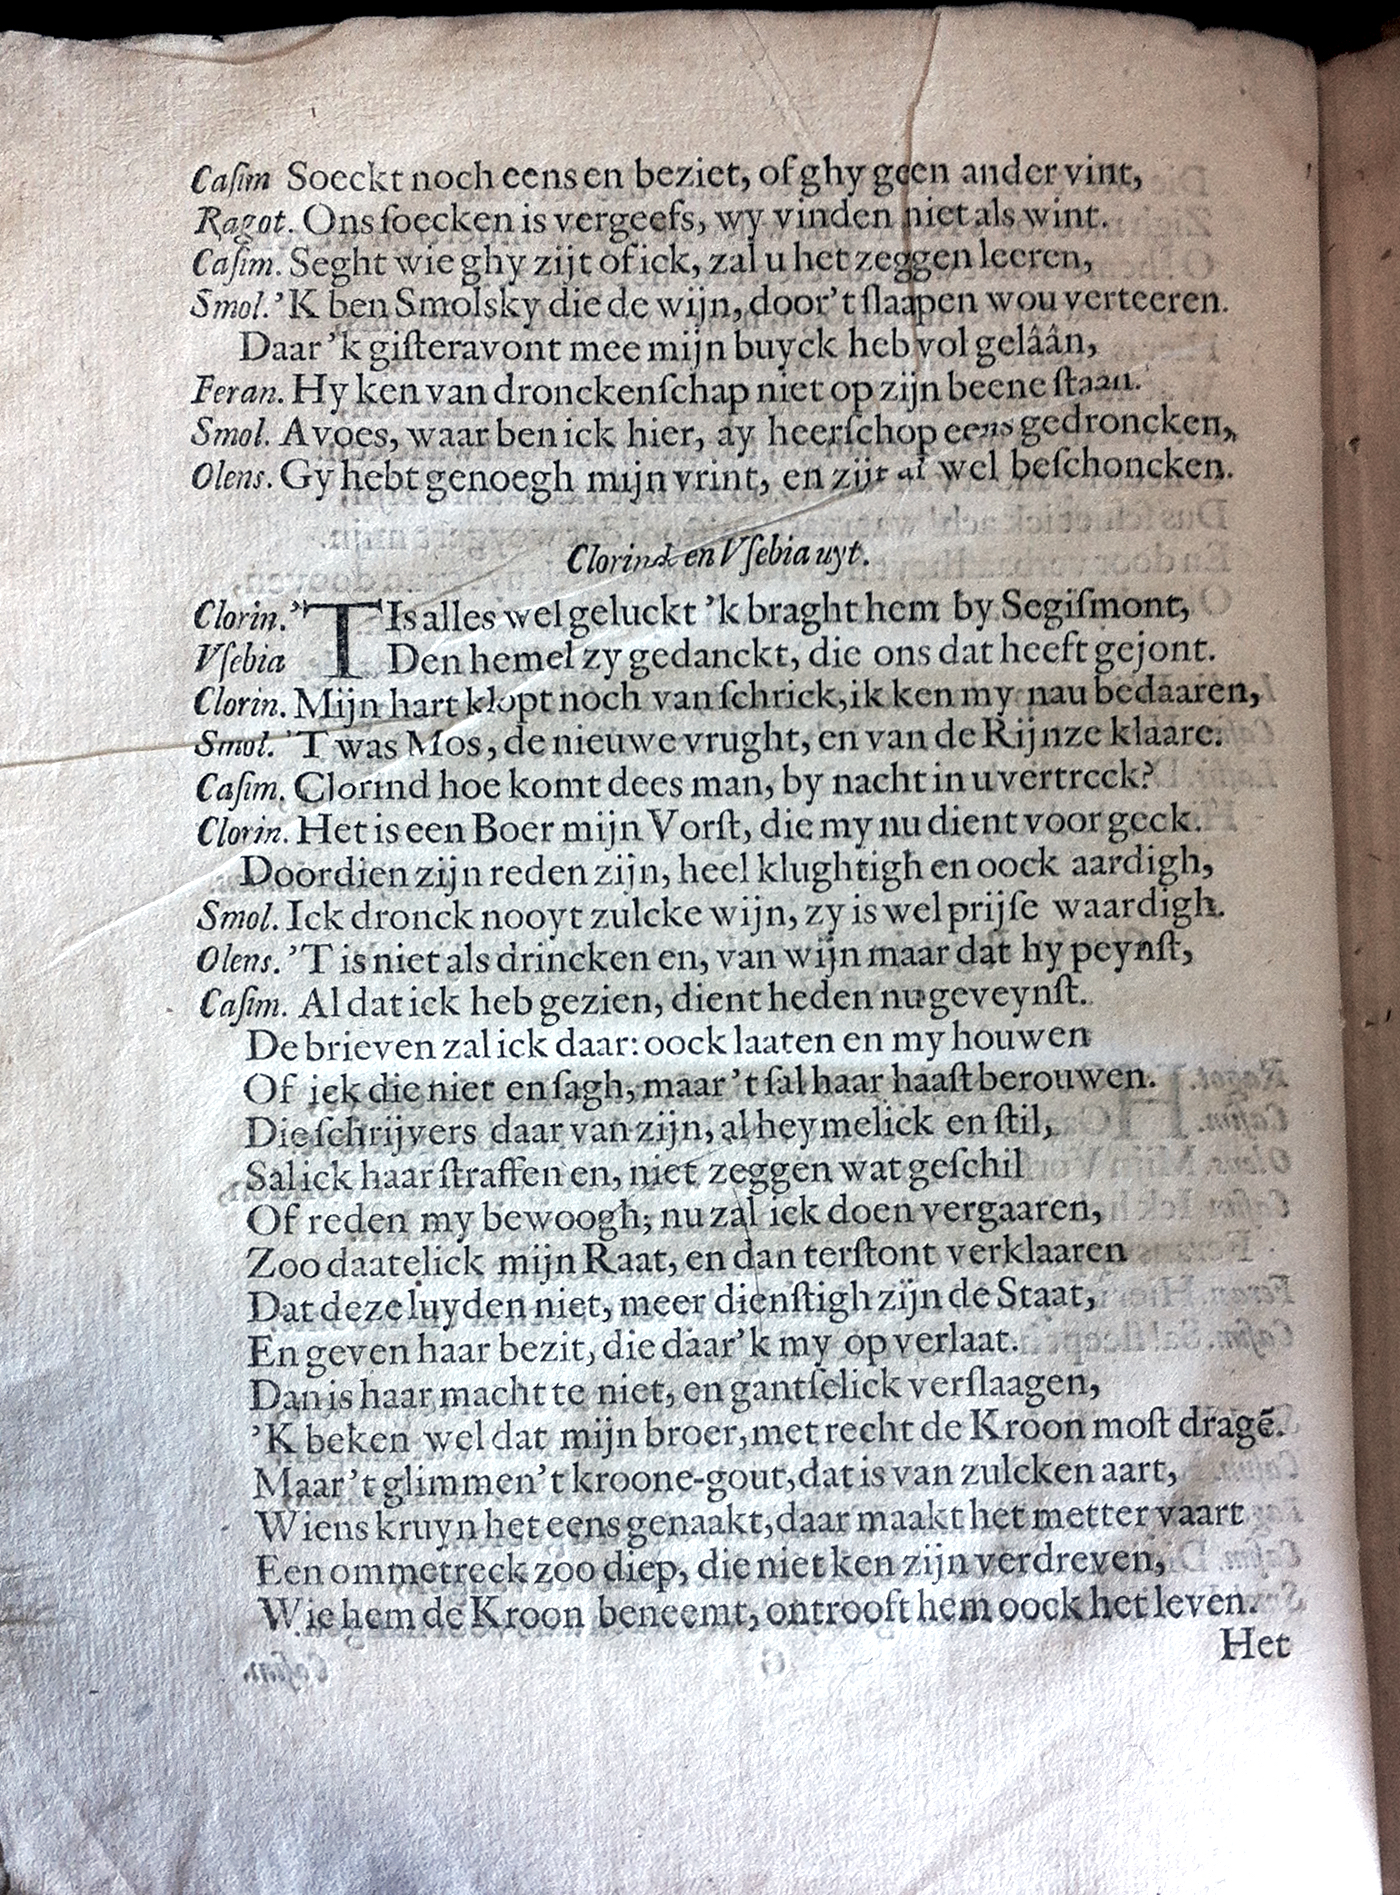 Caſim Soeckt noch eens en beziet, of ghy geen ander vint,
Ragot. Ons ſoecken is vergeefs, wy vinden niet als wint.
Caſim. Seght wie ghy zijt of ick, zal u het zeggen leeren,
Smol. 'K ben Smolsky die de wijn, door 't ſlaapen wou verteeren.
Daar 'k giſteravont mee mijn buyck heb vol gelâân,
Feran. Hy ken van dronckenſchap niet op zijn beene ſtaan.
Smol. Avoes, waar ben ick hier, ay heerſchop eens gedroncken,
Olens. Gy hebt genoegh mijn vrint, en zijt al wel beſchoncken.
Clorind en Vſebia uyt.
Clorin. 'TIs alles wel geluckt 'k braght hem by Segiſmont,
Vſebia Den hemel zy gedanckt, die ons dat heeft gejont.
Clorin. Mijn hart klopt noch van ſchrick, ik ken my nau bedaaren,
Smol. 'T was Mos, de nieuwe vrught, en van de Rijnze klaare.
Caſim. Clorind hoe komt dees man, by nacht in u vertreck?
Clorin. Het is een Boer mijn Vorſt, die my nu dient voor geck.
Doordien zijn reden zijn, heel klughtigh en oock aardigh,
Smol. Ick dronck nooyt zulcke wijn, zy is wel prijſe waardigh.
Olens. 'T is niet als drincken en, van wijn maar dat hy peynſt,
Caſim. Al dat ick heb gezien, dient heden nu geveynſt.
De brieven zal ick daar: oock laaten en my houwen
Of ick die niet en ſagh, maar 't ſal haar haaſt berouwen.
Die ſchrijvers daar van zijn, al heymelick en ſtil,
Sal ick haar ſtraffen en, niet zeggen wat geſchil
Of reden my bewoogh; nu zal ick doen vergaaren,
Zoo daatelick mijn Raat, en dan terſtont verklaaren
Dat deze luyden niet, meer dienſtigh zijn de Staat,
En geven haar bezit, die daar 'k my op verlaat.
Dan is haar macht te niet, en gantſelick verſlaagen,
'K beken wel dat mijn broer, met recht de Kroon moſt dragē.
Maar 't glimmen 't kroone-gout, dat is van zulcken aart,
Wiens kruyn het eens genaakt, daar maakt het metter vaart
Een ommetreck zoo diep, die niet ken zijn verdreven,
Wie hem de Kroon beneemt, ontrooft hem oock het leven.
Het